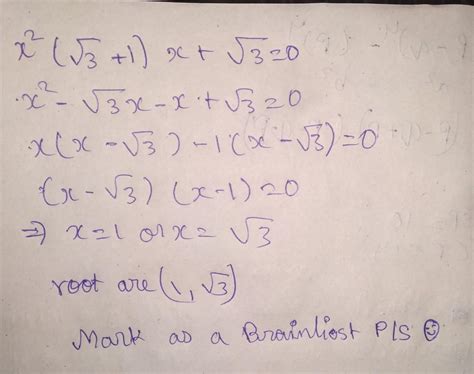 x² (√3 +1) x + √3=0
x² - √3x - x + √3=0
x(x - √3) - 1(x - √3)=0
(x - √3) (x-1)=0
⇒ x=1 or x= √3
root are (1, √3)
Mark as a Brainliost PlS ☺